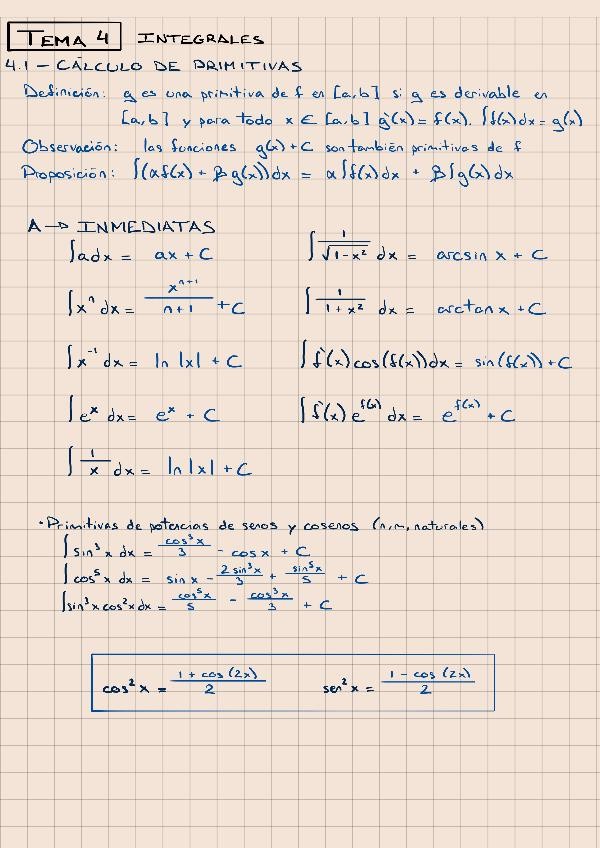 TEMA 4 INTEGRALES
4.1 - CÁLCULO DE PRIMITIVAS
Definición: g es una primitiva de f en [a,b] si g es derivable en
[a,b] y para todo x ∈ [a,b] g'(x) = f(x). ∫f(x)dx = g(x)
Observación: las funciones g(x) + C son también primitivas de f
Proposición: ∫(αf(x) + βg(x))dx = α∫f(x)dx + β∫g(x)dx
A → INMEDIATAS
∫adx = ax + C
∫x^n dx = x^(n+1)/(n+1) + C
∫x^-1 dx = ln |x| + C
∫e^x dx = e^x + C
∫1/x dx = ln |x| + C
∫1/√(1-x²) dx = arcsin x + C
∫1/(1+x²) dx = arctan x + C
∫f'(x)cos(f(x))dx = sin(f(x)) + C
∫f'(x) e^f(x) dx = e^f(x) + C
· Primitivas de potencias de senos y cosenos (n,m, naturales)
∫sin³x dx = cos³x/3 - cos x + C
∫cos⁵x dx = sin x - 2sin³x/3 + sin⁵x/5 + C
∫sin³x cos²x dx = cos⁵x/5 - cos³x/3 + C
cos²x = (1 + cos(2x))/2 sen²x = (1 - cos(2x))/2